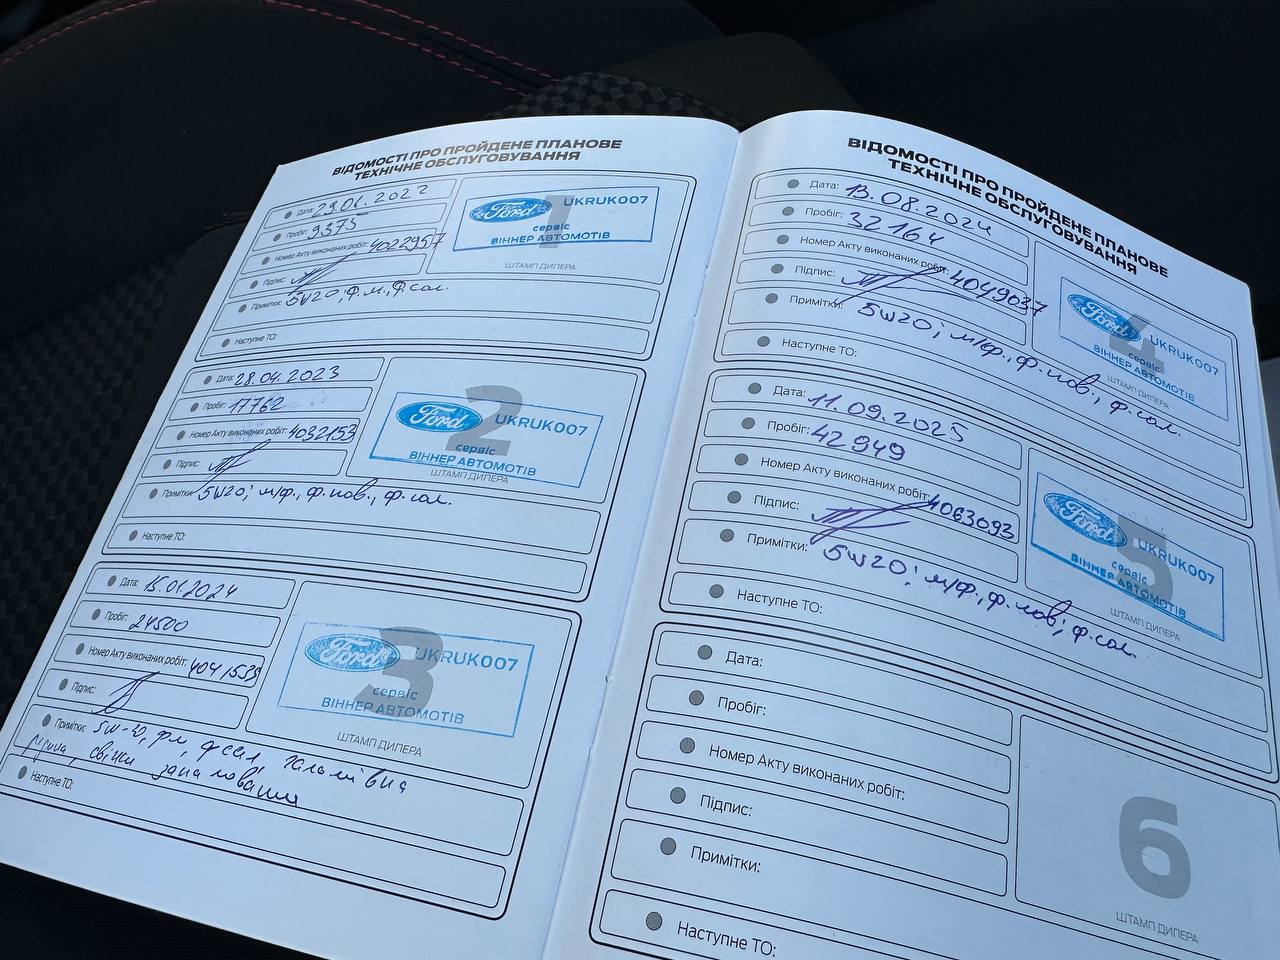 ВІДОМОСТІ ПРО ПРОЙДЕНЕ ПЛАНОВЕ
ТЕХНІЧНЕ ОБСЛУГОВУВАННЯ
Дата: 29.01.2022
Пробіг: 9375
Номер Акту виконаних робіт: 4022957
Підпис:
Примітки: 5w20; ф.м., ф.сал.
Наступне ТО:
1
Ford
UKRUK007
сервіс
ВІННЕР АВТОМОТІВ
ШТАМП ДИЛЕРА
Дата: 28.04.2023
Пробіг: 17762
Номер Акту виконаних робіт: 4032153
Підпис:
Примітки: 5w20; м/ф., ф.пов., ф.сал.
Наступне ТО:
2
Ford
UKRUK007
сервіс
ВІННЕР АВТОМОТІВ
ШТАМП ДИЛЕРА
Дата: 15.01.2024
Пробіг: 24500
Номер Акту виконаних робіт: 4041539
Підпис:
Примітки: 5w-20, фм, ф сал гальмівна
рідина, свічки запалювання
Наступне ТО:
3
Ford
UKRUK007
сервіс
ВІННЕР АВТОМОТІВ
ШТАМП ДИЛЕРА
ВІДОМОСТІ ПРО ПРОЙДЕНЕ ПЛАНОВЕ
ТЕХНІЧНЕ ОБСЛУГОВУВАННЯ
Дата: 13.08.2024
Пробіг: 32164
Номер Акту виконаних робіт: 4049037
Підпис:
Примітки: 5w20; м/ф., ф.пов., ф.сал.
Наступне ТО:
4
Ford
UKRUK007
сервіс
ВІННЕР АВТОМОТІВ
ШТАМП ДИЛЕРА
Дата: 11.09.2025
Пробіг: 42949
Номер Акту виконаних робіт: 4063093
Підпис:
Примітки: 5w20; м/ф., ф.пов., ф.сал.
Наступне ТО:
5
Ford
UKRUK007
сервіс
ВІННЕР АВТОМОТІВ
ШТАМП ДИЛЕРА
Дата:
Пробіг:
Номер Акту виконаних робіт:
Підпис:
Примітки:
Наступне ТО:
6
ШТАМП ДИЛЕРА